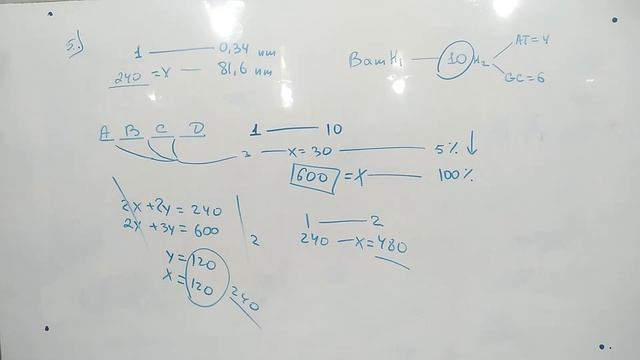 5.)
1 — 0,34 nm
240 = Y — 81,6 nm
BamH1 — 10 H2
AT = 4
GC = 6
A B C D
1 — 10
3 — X = 30 — 5% ↓
600 = X — 100%
2X + 2Y = 240
2X + 3Y = 600
2
Y = 120
X = 120
240
1 — 2
240 — X = 480